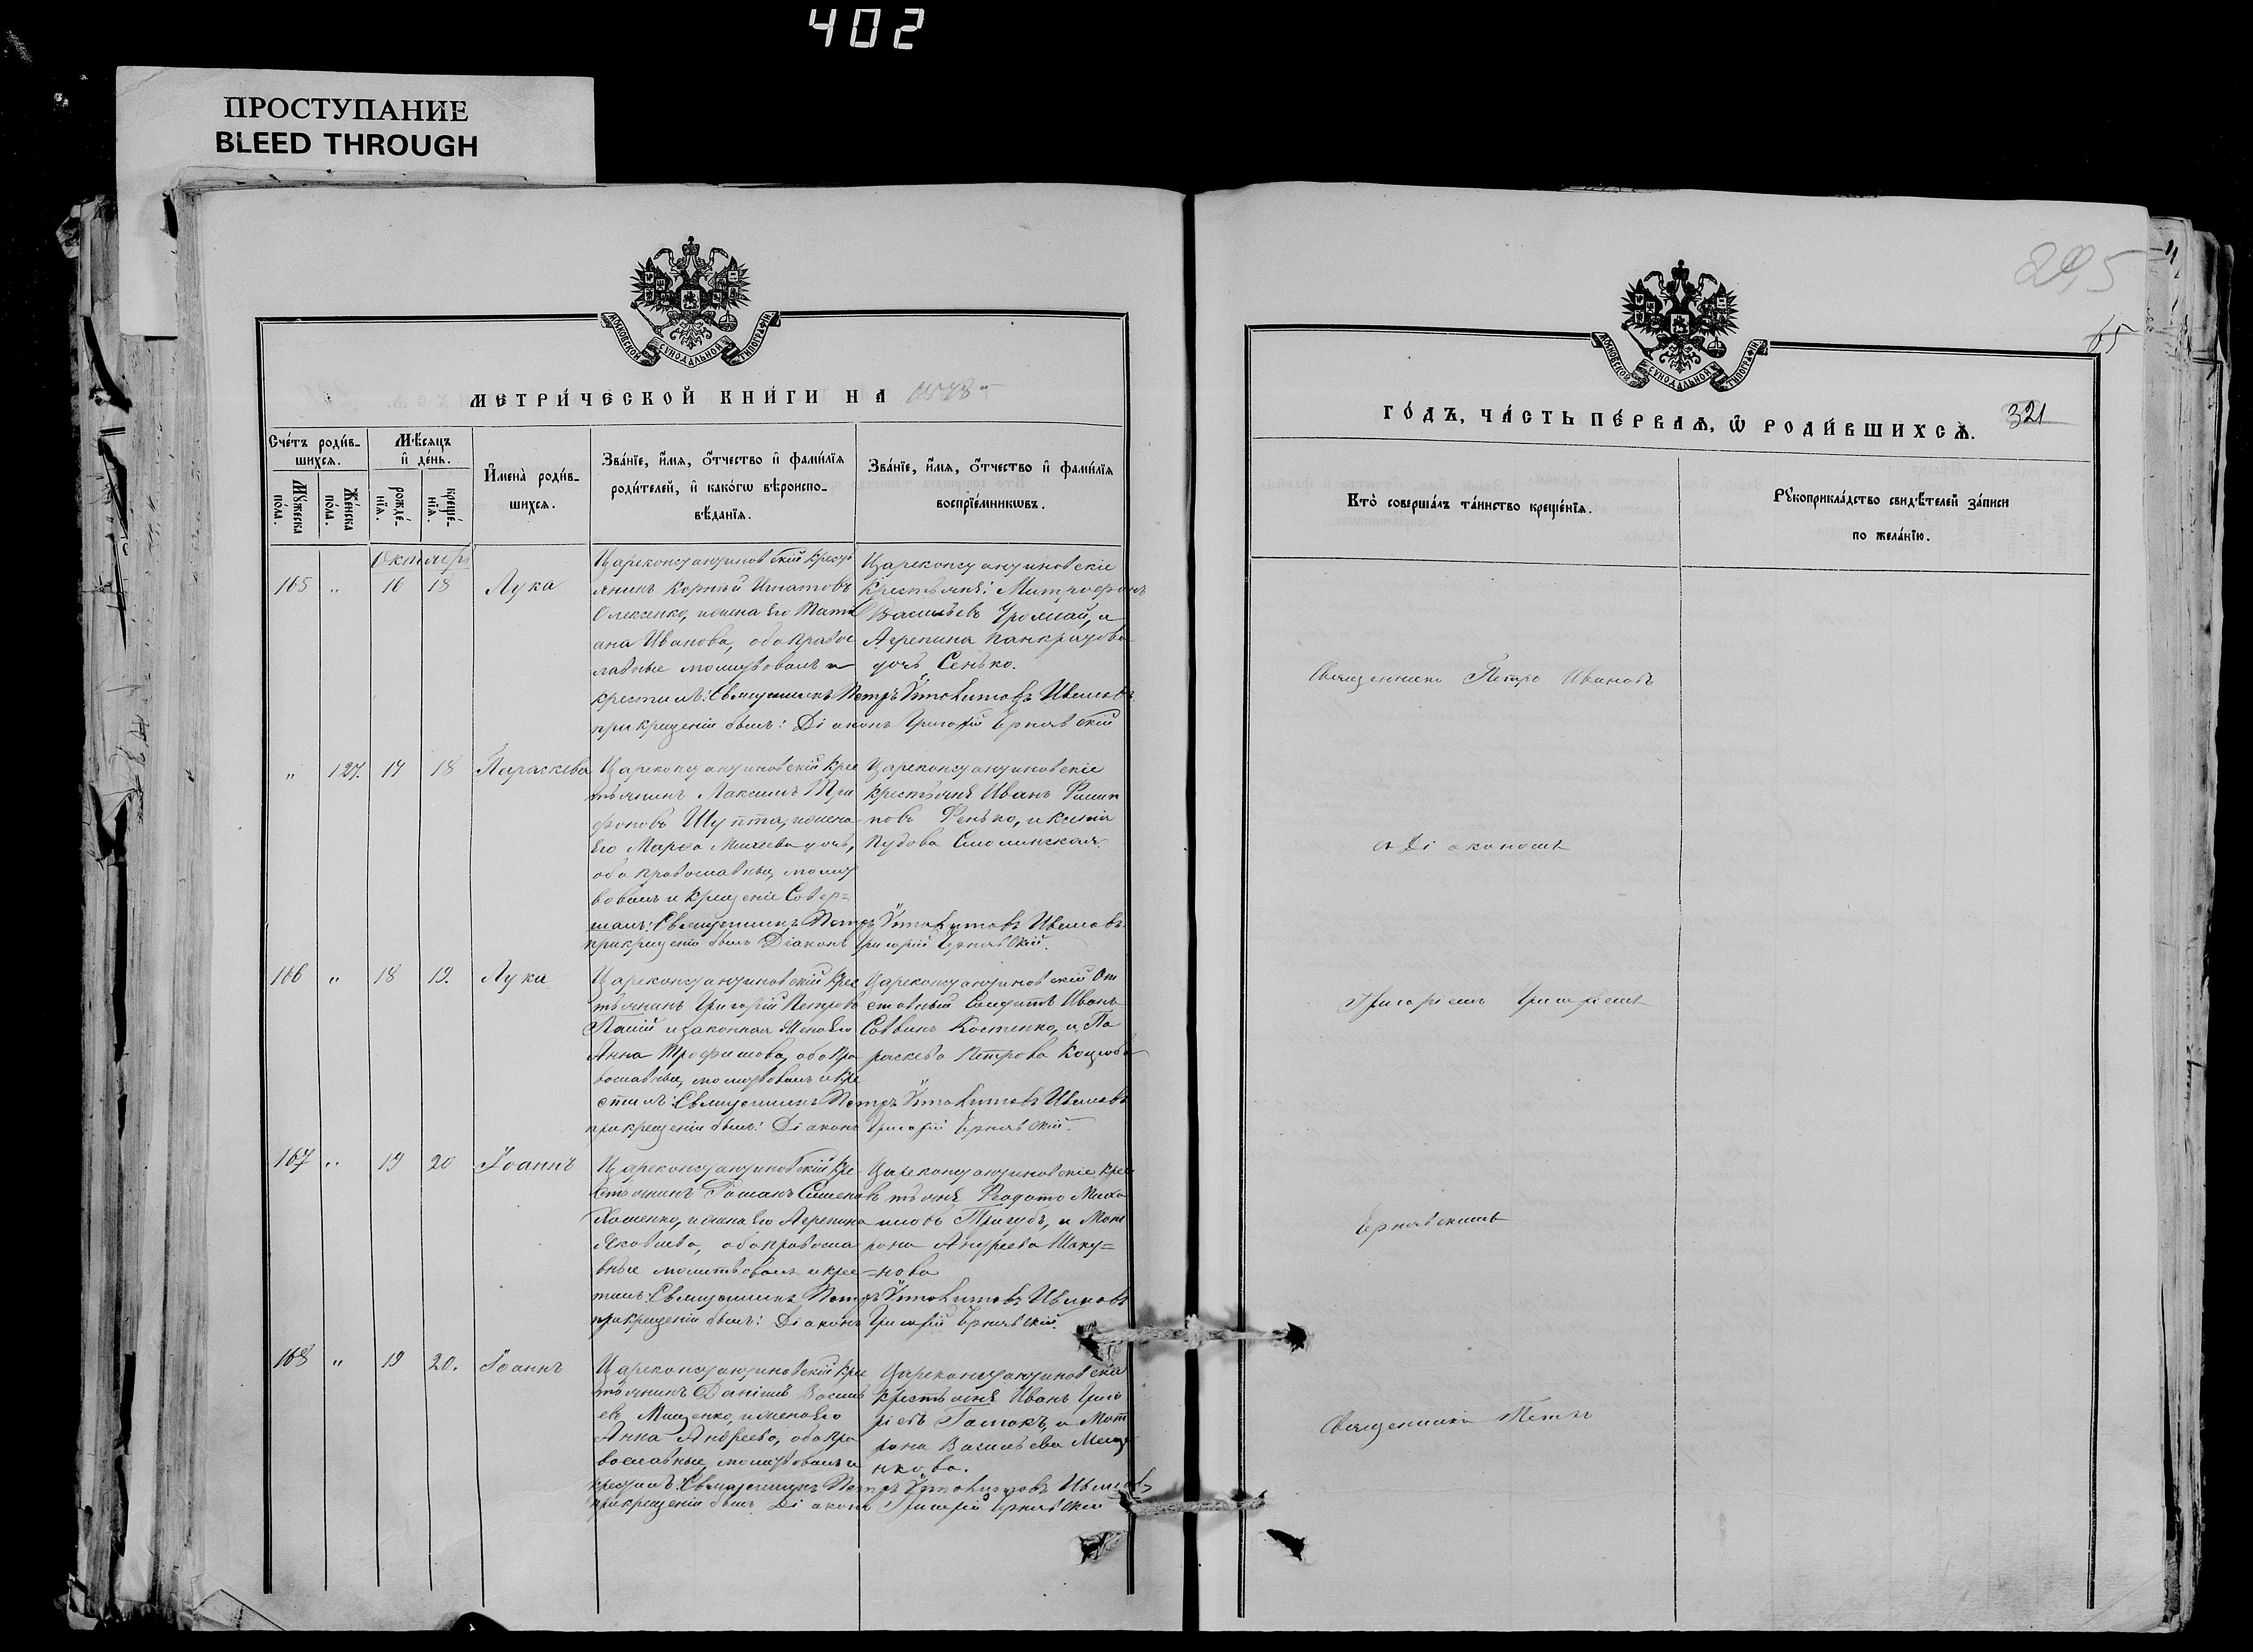 402
ПРОСТУПАНИЕ
BLEED THROUGH
МОСКОВСКОЙ СУНОДАЛЬНОЙ ТИПОГРАФІИ
МЕТРИ́ЧЕСКОЙ КНИ́ГИ НА
Сче́тъ роди́в-
шихсѧ.
Мꙋ́жеска
по́ла.
Же́нска
по́ла.
Мѣ́сѧцъ
и҆ де́нь.
рожде́-
нїѧ.
креще́-
нїѧ.
И҆мена̀ роди́в-
шихсѧ.
Зва́нїе, и҆́мѧ, ѻ҆́тчество и҆ фами́лїѧ
роди́телей, и҆ како́гѡ вѣроиспо-
вѣ́данїѧ.
Зва́нїе, и҆́мѧ, ѻ҆́тчество и҆ фами́лїѧ
воспрїе́мникѡвъ.
165 " 16 18 Лука
Цареконстантиновскій кресть
янинъ Корній Игнатовъ
Олексенко, и жена его Тати
ана Иванова, оба правос
лавные молитвовалъ и
крестилъ: Священникъ Петръ Ивановъ
при крещеніи былъ: Діаконъ Григорій Чернявскій
Цареконстантиновскіе
крестьяне: Митрофанъ
Васильевъ и
Агрепина Панкратова
дочь Сенько.
" 127. 17 18 Параскева
Цареконстантиновскій крес
тьянинъ Максимъ Три
фоновъ Шупта, и жена
его Марфа дочь,
оба православные, молит
вовалъ и крещеніе совер=
шалъ: Священникъ Петръ Ивановъ
при крещеніи былъ Діаконъ Григорій Чернявскій.
Цареконстантиновскіе
крестьяне Иванъ Филип
повъ Фенько, и Ксенія
Пудова Смолинская.
166 " 18 19. Лука
Цареконстантиновскій крес
тьянинъ Григорій Петровъ
и законная жена его
Анна Трофимова, оба пра
вославные, молитвовалъ и кре
стилъ: Священникъ Петръ Ивановъ
при крещеніи былъ: Діаконъ Григорій Чернявскій.
Цареконстантиновскій от
ставный солдатъ Иванъ
Саввинъ Костенко, и Па
раскева Петрова
167 " 19 20 Іоаннъ
Цареконстантиновскій кре
стьянинъ Романъ Семеновъ
Хоменко, и жена его Агрепина
Яковлева, оба правосла
вные молитвовалъ и крес
тилъ: Священникъ Петръ Ивановъ
при крещеніи былъ: Діаконъ Григорій Чернявскій.
Цареконстантиновскіе крес
тьяне Феодотъ Миха
иловъ Тригубъ, и Мот
рона Андреева Шаку=
=нова
168 " 19 20. Іоаннъ
Цареконстантиновскій крес
тьянинъ Даніилъ Василь
евъ Мищенко, и жена его
Анна Андреева, оба пра
вославные, молитвовалъ и
крестилъ: Священникъ Петръ Ивановъ
при крещеніи былъ Діаконъ Григорій Чернявскій
Цареконстантиновскіе
крестьяне Иванъ Григо
рьевъ и Мот
рона Васильева
нкова.
295
65
МОСКОВСКОЙ СУНОДАЛЬНОЙ ТИПОГРАФІИ
ГО́ДЪ, ЧА́СТЬ ПЕ́РВАѦ, Ѡ҆ РОДИ́ВШИХСѦ.
321
Кто̀ соверша́лъ та́инство креще́нїѧ.
Рꙋкоприкла́дство свидѣ́телей за́писи
по жела́нїю.
Священникъ Петръ Ивановъ
съ Діакономъ
Григоріемъ Григоріемъ
Чернявскимъ
Священникъ Петръ